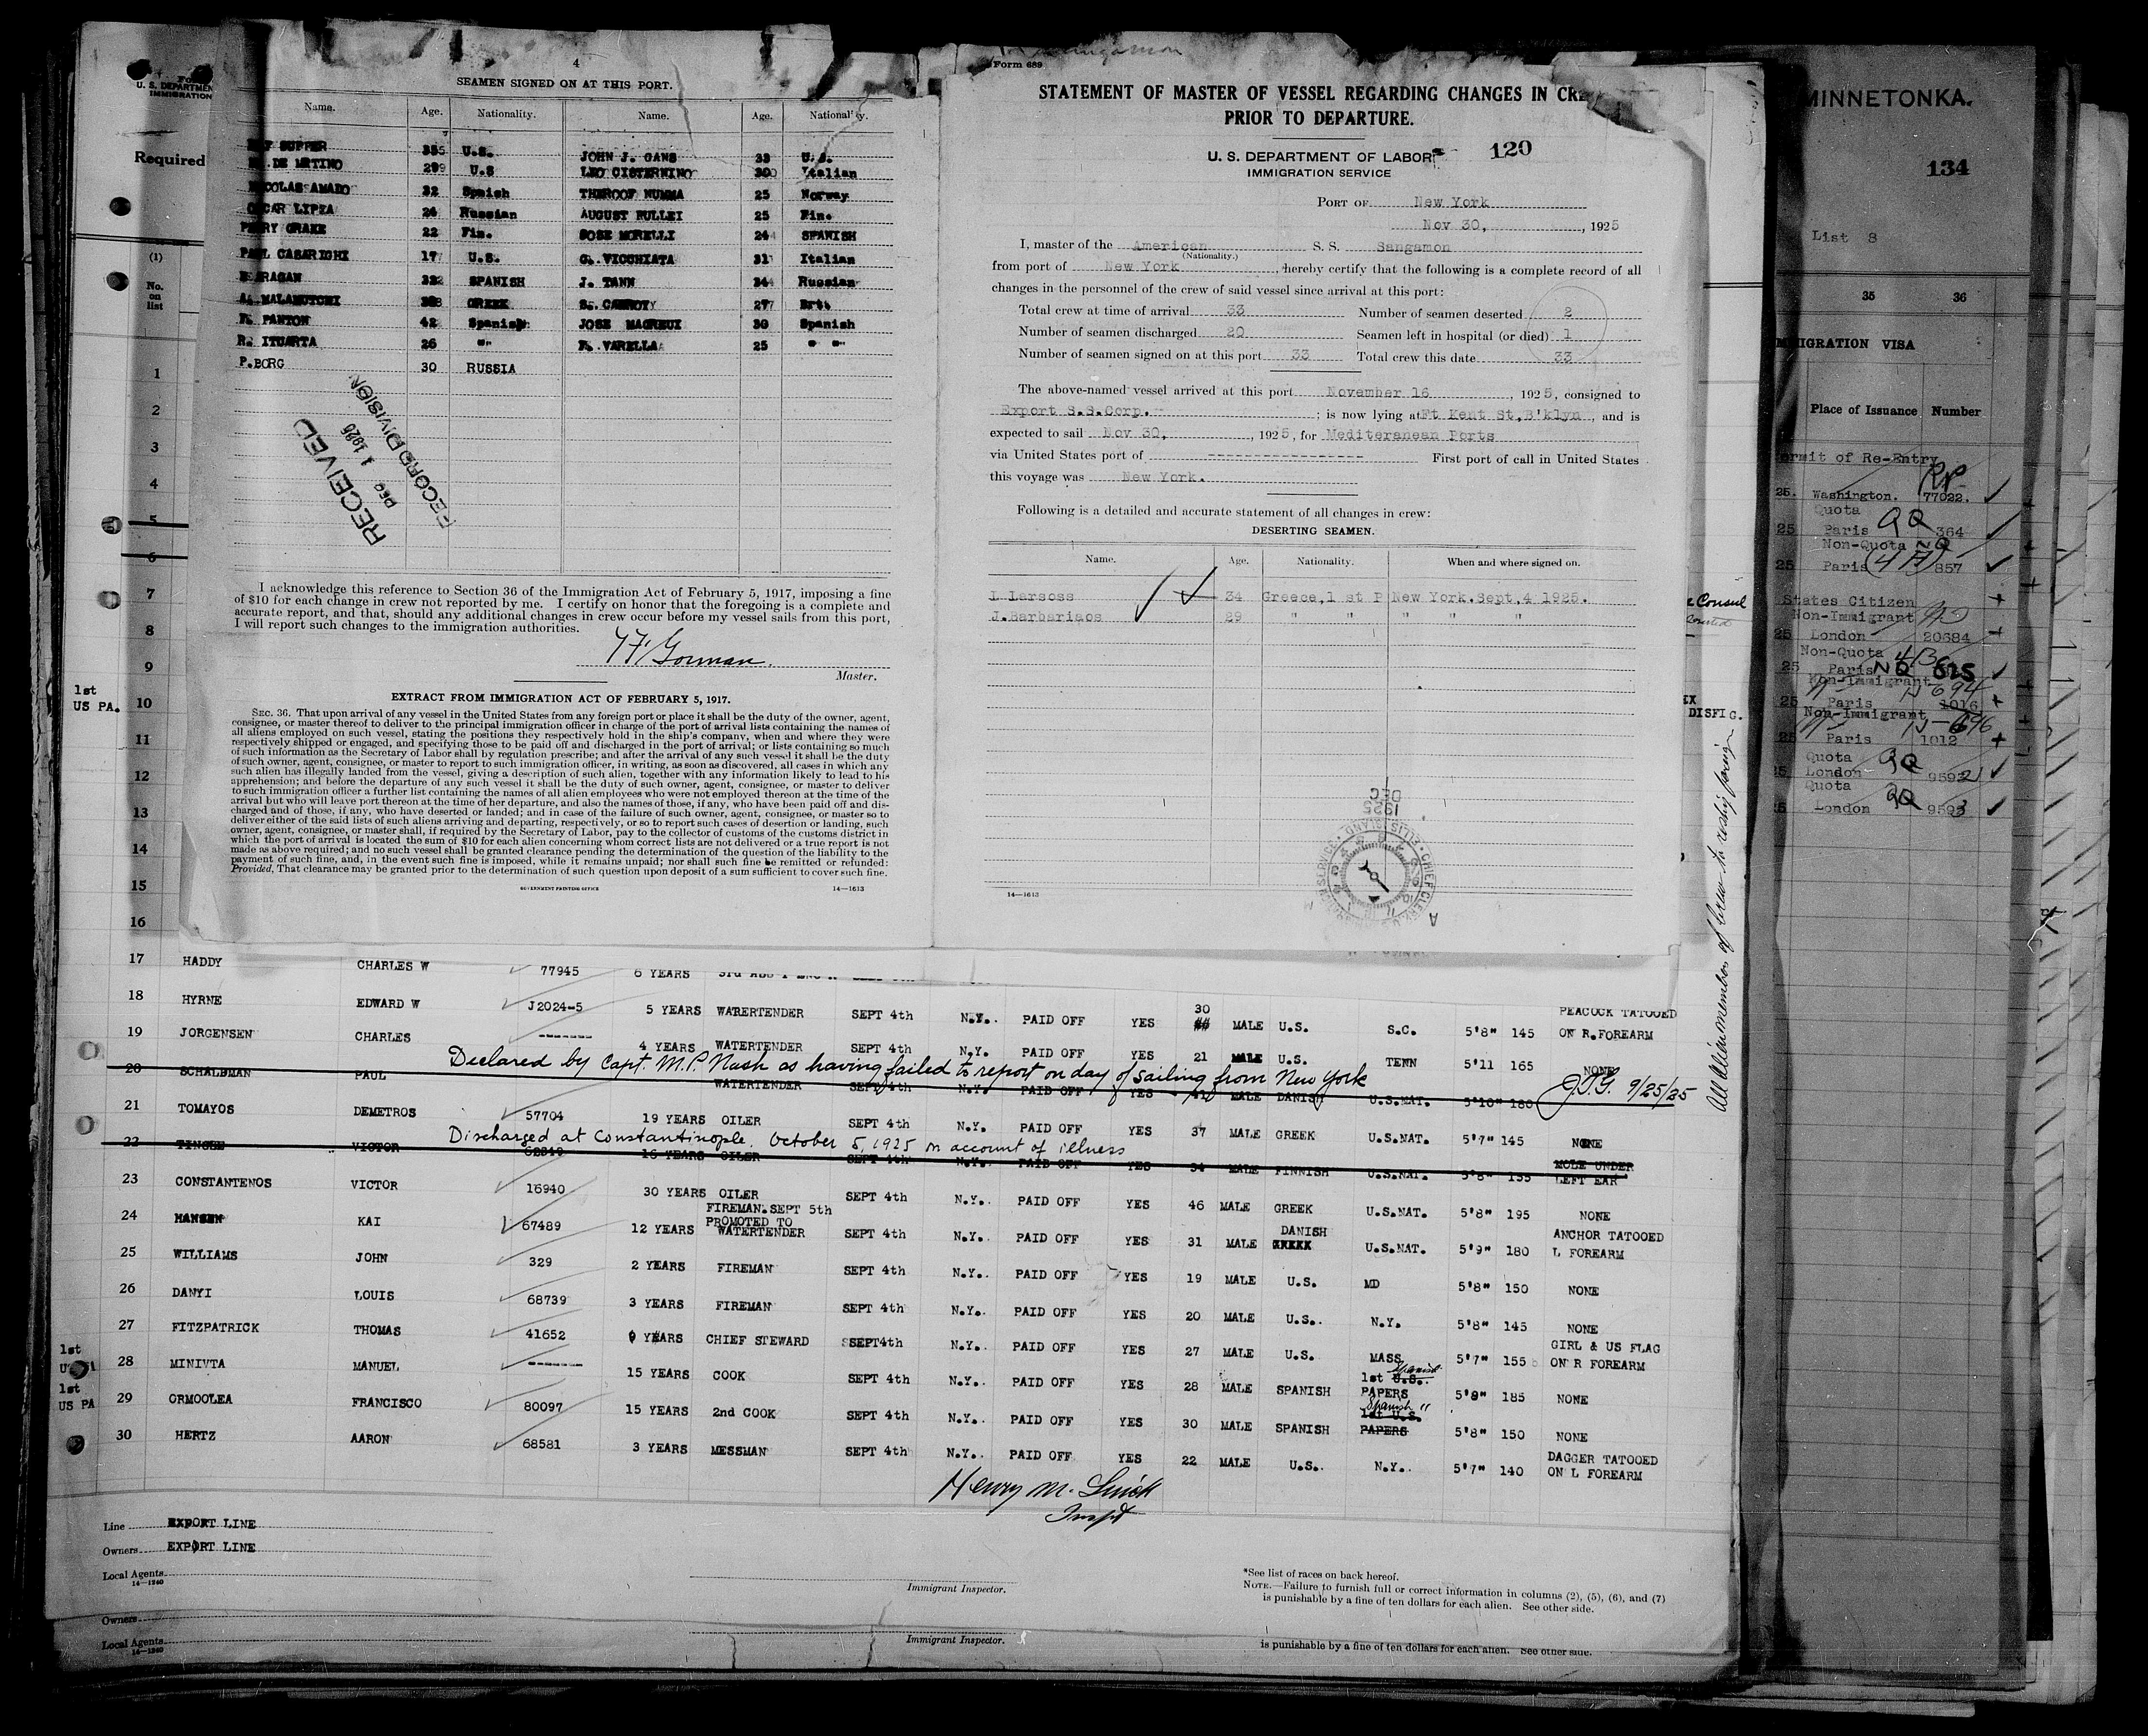 4
SEAMEN SIGNED ON AT THIS PORT.
Name. Age. Nationality. Name. Age. Nationality.
SUPPER 35 U.S. JOHN J. GANS 33 U.S.
DE METINO 29 U.S LEO CISTERNINO 30 Italian
NICOLAS AMADO 32 Spnish THEROOF NUMMA 25 Norway
OSCAR LIPEA 24 Russian AUGUST PULLEI 25 Fin.
PERRY GRAKE 22 Fin. JOSE MORELLI 24 SPANISH
PAUL CASARIGHI 17 U.S. G. VICCHIATA 31 Italian
BARAGAN 32 SPANISH J. TANN 34 Russian
A. MALAMUTCHI 38 GREEK S. CARROY 27 Brit
F. PANTON 42 Spanish JOSE MAGREUX 30 Spanish
R. ITUARTA 26 " F. VARELLA 25 " "
P. BORG 30 RUSSIA
RECEIVED
DEC 1 1925
RECORD DIVISION
I acknowledge this reference to Section 36 of the Immigration Act of February 5, 1917, imposing a fine
of $10 for each change in crew not reported by me. I certify on honor that the foregoing is a complete and
accurate report, and that, should any additional changes in crew occur before my vessel sails from this port,
I will report such changes to the immigration authorities.
Gorman.
Master.
EXTRACT FROM IMMIGRATION ACT OF FEBRUARY 5, 1917.
SEC. 36. That upon arrival of any vessel in the United States from any foreign port or place it shall be the duty of the owner, agent,
consignee, or master thereof to deliver to the principal immigration officer in charge of the port of arrival lists containing the names of
all aliens employed on such vessel, stating the positions they respectively hold in the ship's company, when and where they were
respectively shipped or engaged, and specifying those to be paid off and discharged in the port of arrival; or lists containing so much
of such information as the Secretary of Labor shall by regulation prescribe; and after the arrival of any such vessel it shall be the duty
of such owner, agent, consignee, or master to report to such immigration officer, in writing, as soon as discovered, all cases in which any
such alien has illegally landed from the vessel, giving a description of such alien, together with any information likely to lead to his
apprehension; and before the departure of any such vessel it shall be the duty of such owner, agent, consignee, or master to deliver
to such immigration officer a further list containing the names of all alien employees who were not employed thereon at the time of the
arrival but who will leave port thereon at the time of her departure, and also the names of those, if any, who have been paid off and dis-
charged and of those, if any, who have deserted or landed; and in case of the failure of such owner, agent, consignee, or master so to
deliver either of the said lists of such aliens arriving and departing, respectively, or so to report such cases of desertion or landing, such
owner, agent, consignee, or master shall, if required by the Secretary of Labor, pay to the collector of customs of the customs district in
which the port of arrival is located the sum of $10 for each alien concerning whom correct lists are not delivered or a true report is not
made as above required; and no such vessel shall be granted clearance pending the determination of the question of the liability to the
payment of such fine, and, in the event such fine is imposed, while it remains unpaid; nor shall such fine be remitted or refunded:
Provided, That clearance may be granted prior to the determination of such question upon deposit of a sum sufficient to cover such fine.
GOVERNMENT PRINTING OFFICE 14—1613
Form 689
STATEMENT OF MASTER OF VESSEL REGARDING CHANGES IN CRE
PRIOR TO DEPARTURE.
U. S. DEPARTMENT OF LABOR 120
IMMIGRATION SERVICE
PORT OF New York
Nov 30, , 1925
I, master of the American S. S. Sangamon
(Nationality.)
from port of New York , hereby certify that the following is a complete record of all
changes in the personnel of the crew of said vessel since arrival at this port:
Total crew at time of arrival 33 Number of seamen deserted 2
Number of seamen discharged 20 Seamen left in hospital (or died) 1
Number of seamen signed on at this port 33 Total crew this date 33
The above-named vessel arrived at this port November 16 , 1925, consigned to
Export S.S.Corp. ; is now lying at Ft Kent St,B'klyn , and is
expected to sail Nov 30, , 1925, for Mediteranean Ports
via United States port of ---------------- First port of call in United States
this voyage was New York.
Following is a detailed and accurate statement of all changes in crew:
DESERTING SEAMEN.
Name. Age. Nationality. When and where signed on.
L Larsoss 34 Greece,1 st P New York.Sept,4 1925.
J.Barbariaos 29 " " " " "
1925
DEC
14—1613
U. S. DEPARTMEN
IMMIGRATION
Required
(1)
No.
on
list
1
2
3
4
5
6
7
8
9
1st
US PA. 10
11
12
13
14
15
16
17 HADDY CHARLES W 77945 6 YEARS
18 HYRNE EDWARD W J2024-5 5 YEARS WARERTENDER SEPT 4th N.Y. PAID OFF YES 30 MALE U.S. S.C. 5'8" 145 PEACOCK TATOOED ON R.FOREARM
19 JORGENSEN CHARLES ------ 4 YEARS WATERTENDER SEPT 4th N.Y. PAID OFF YES 21 MALE U.S. TENN 5'11 165 NONE
Declared by Capt. M.P. Nash as having failed to report on day of sailing from New York J.T.G. 9/25/25
20 SCHALBMAN PAUL WATERTENDER SEPT 4th N.Y. PAID OFF YES 41 MALE DANISH U.S.NAT. 5'10" 180
21 TOMAYOS DEMETROS 57704 19 YEARS OILER SEPT 4th N.Y. PAID OFF YES 37 MALE GREEK U.S.NAT. 5'7" 145 NONE
Discharged at Constantinople, October 5, 1925 on account of illness
22 VICTOR 16 YEARS OILER SEPT 4th N.Y. PAID OFF YES 34 MALE FINNISH U.S.NAT. 5'8" 155 MOLE UNDER LEFT EAR
23 CONSTANTENOS VICTOR 16940 30 YEARS OILER SEPT 4th N.Y. PAID OFF YES 46 MALE GREEK U.S.NAT. 5'8" 195 NONE
24 HANSEN KAI 67489 12 YEARS FIREMAN.SEPT 5th PROMOTED TO WATERTENDER SEPT 4th N.Y. PAID OFF YES 31 MALE DANISH U.S.NAT. 5'9" 180 ANCHOR TATOOED L FOREARM
25 WILLIAMS JOHN 329 2 YEARS FIREMAN SEPT 4th N.Y. PAID OFF YES 19 MALE U.S. MD 5'8" 150 NONE
26 DANYI LOUIS 68739 3 YEARS FIREMAN SEPT 4th N.Y. PAID OFF YES 20 MALE U.S. N.Y. 5'8" 145 NONE
27 FITZPATRICK THOMAS 41652 9 YEARS CHIEF STEWARD SEPT4th N.Y. PAID OFF YES 27 MALE U.S. MASS 5'7" 155 GIRL & US FLAG ON R FOREARM
1st
28 MINIVTA MANUEL ------ 15 YEARS COOK SEPT 4th N.Y. PAID OFF YES 28 MALE SPANISH 1st U.S. Spanish PAPERS 5'8" 185 NONE
1st
US PA 29 ORMOOLEA FRANCISCO 80097 15 YEARS 2nd COOK SEPT 4th N.Y. PAID OFF YES 30 MALE SPANISH Spanish " 1st U.S. PAPERS 5'8" 150 NONE
30 HERTZ AARON 68581 3 YEARS MESSMAN SEPT 4th N.Y. PAID OFF YES 22 MALE U.S. N.Y. 5'7" 140 DAGGER TATOOED ON L FOREARM
Henry M.
Line EXPORT LINE
Owners EXPORT LINE
Local Agents
14—1240
Immigrant Inspector.
*See list of races on back hereof.
NOTE.—Failure to furnish full or correct information in columns (2), (5), (6), and (7)
is punishable by a fine of ten dollars for each alien. See other side.
Owners
Local Agents
14—1240
Immigrant Inspector.
is punishable by a fine of ten dollars for each alien. See other side.
Consul
DISFIG.
MINNETONKA.
134
List 8
35 36
MIGRATION VISA
Place of Issuance Number
ermit of Re-Entry
25. Washington. 77022.
Quota
25 Paris QQ 364
Non-Quota NQ
25 Paris 857
States Citizen
Non-Immigrant
25 London 20684
Non-Quota
25 Paris NQ
Non-Immigrant
25 Paris 1016
Non-Immigrant
25 Paris 1012
Quota
25 London 9592
Quota
25 London 9593